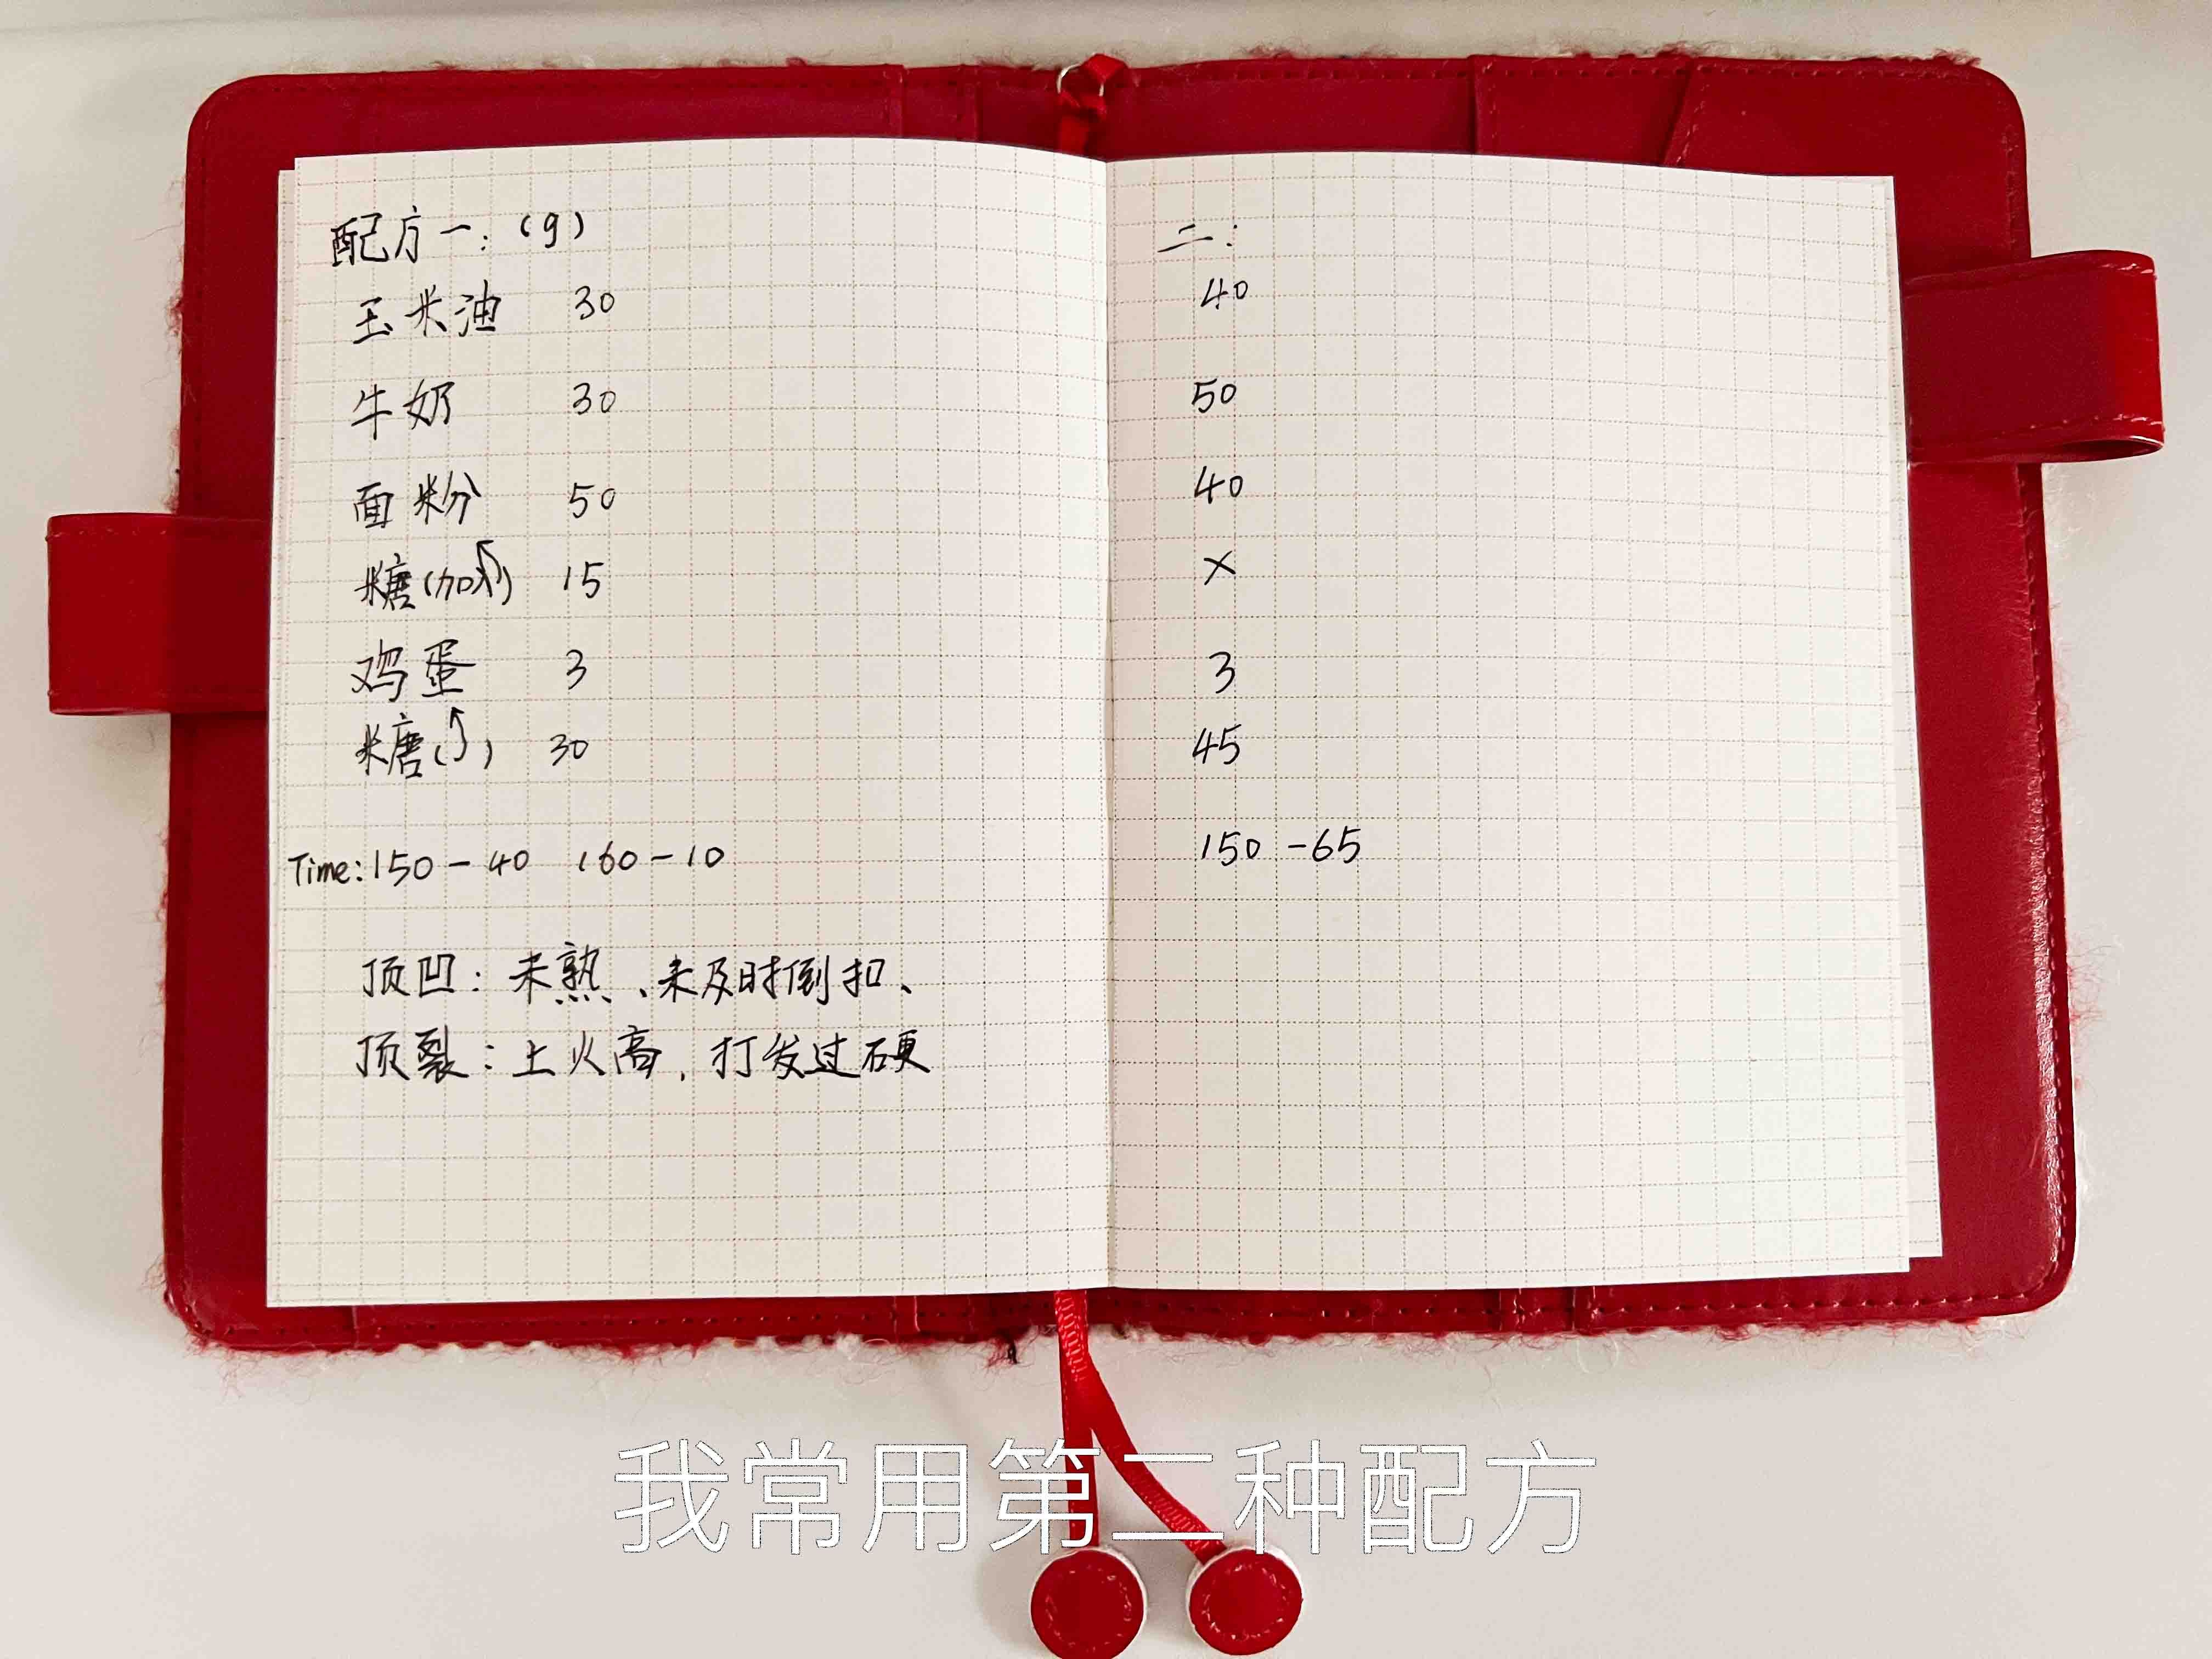 配方一：(g)
玉米油 30
牛奶 30
面粉 50
糖(加入↑) 15
鸡蛋 3
糖(↑) 30
Time:150-40 160-10
顶凹：未熟、未及时倒扣、
顶裂：上火高，打发过硬
二：
40
50
40
×
3
45
150-65
我常用第二种配方